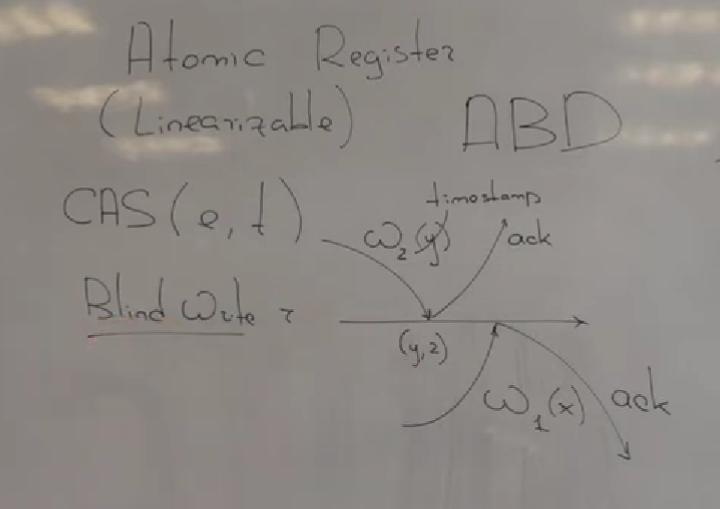 Atomic Register
(Linearizable)
ABD
CAS(e, t)
timestamp
ω₂(y)
ack
Blind Write
(y, 2)
ω₁(x)
ack